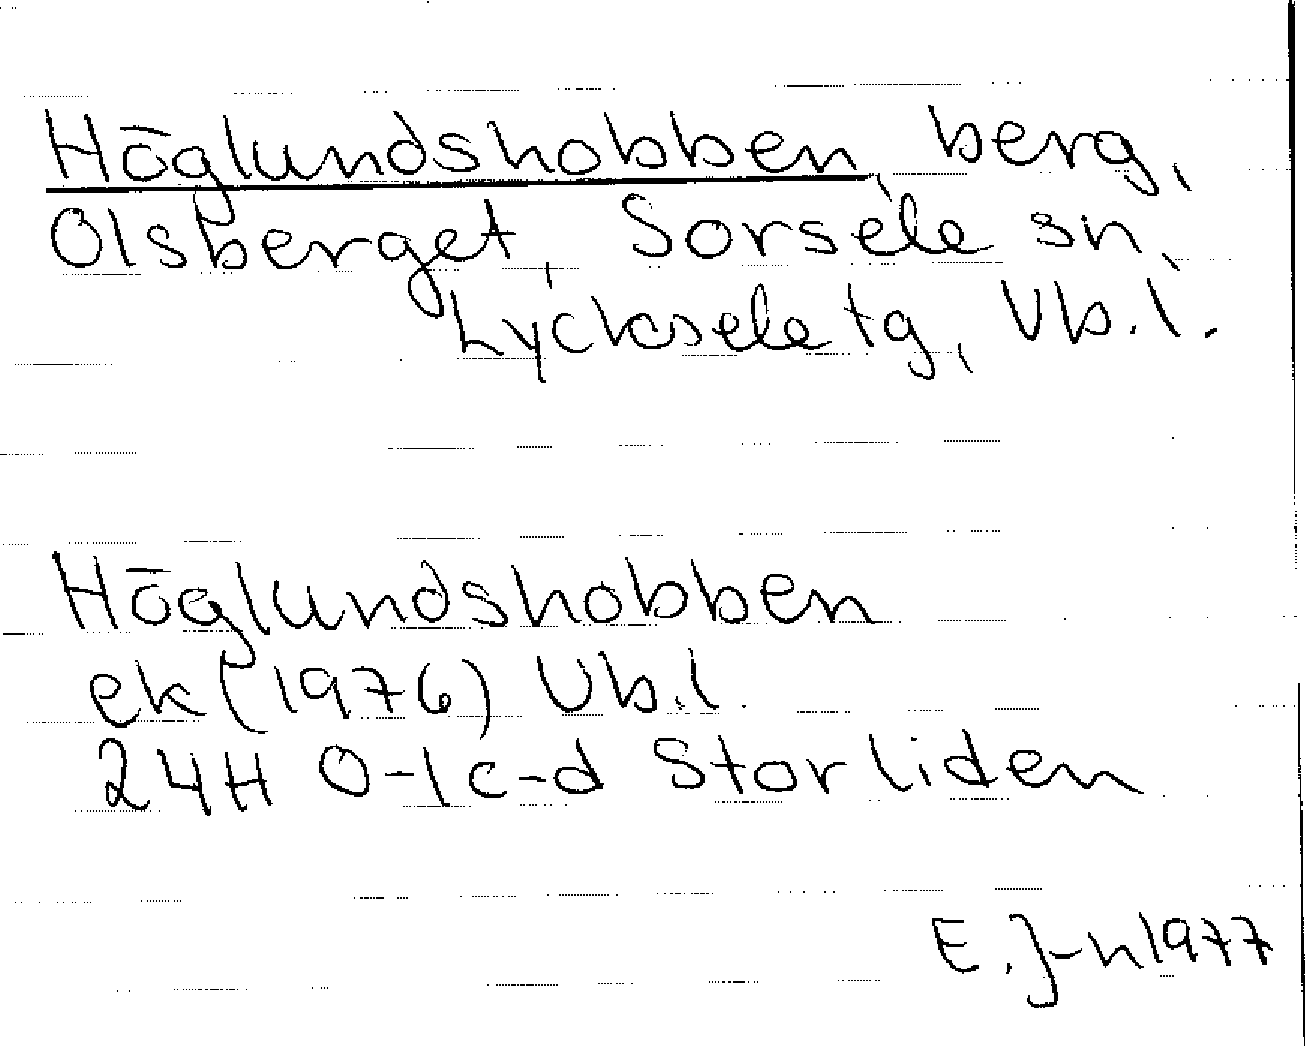 Höglundshobben, berg,
Olsberget, Sorsele sn,
Lycksele tg, Vb.l.
Höglundshobben
ek (1976) Vb.l.
24H 0-1c-d Storliden
E. J-n 1977